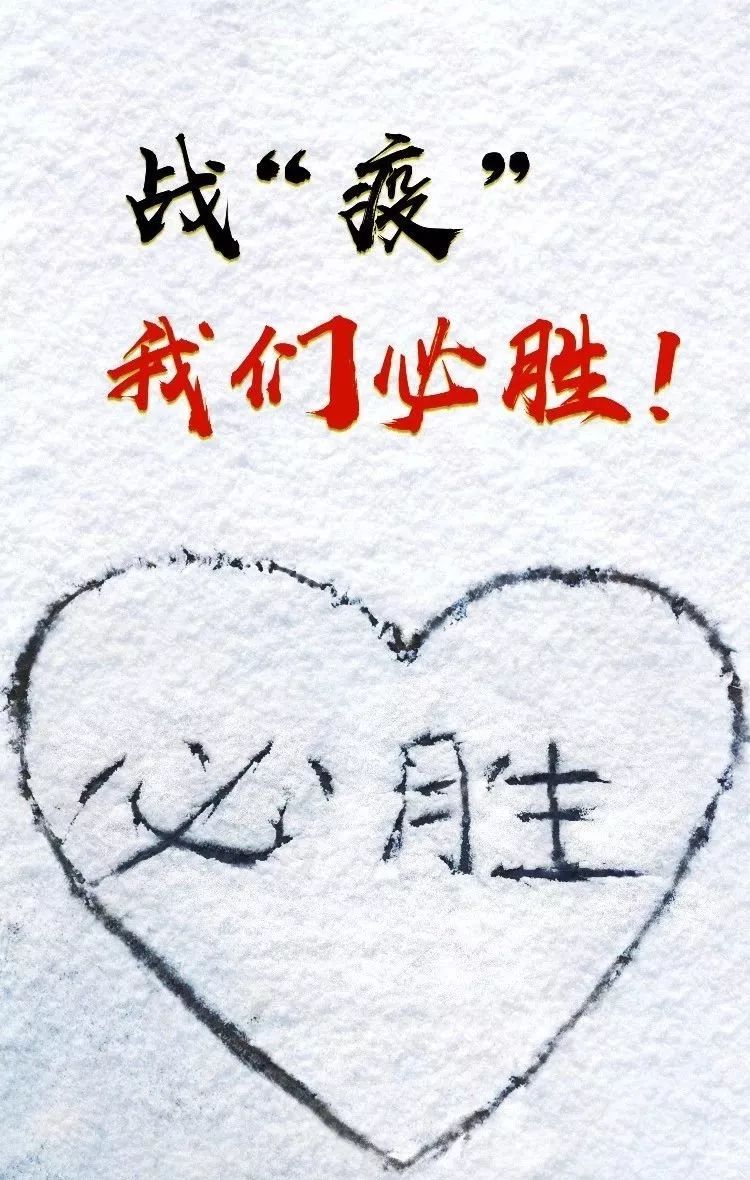 战“疫”
我们必胜！
必胜